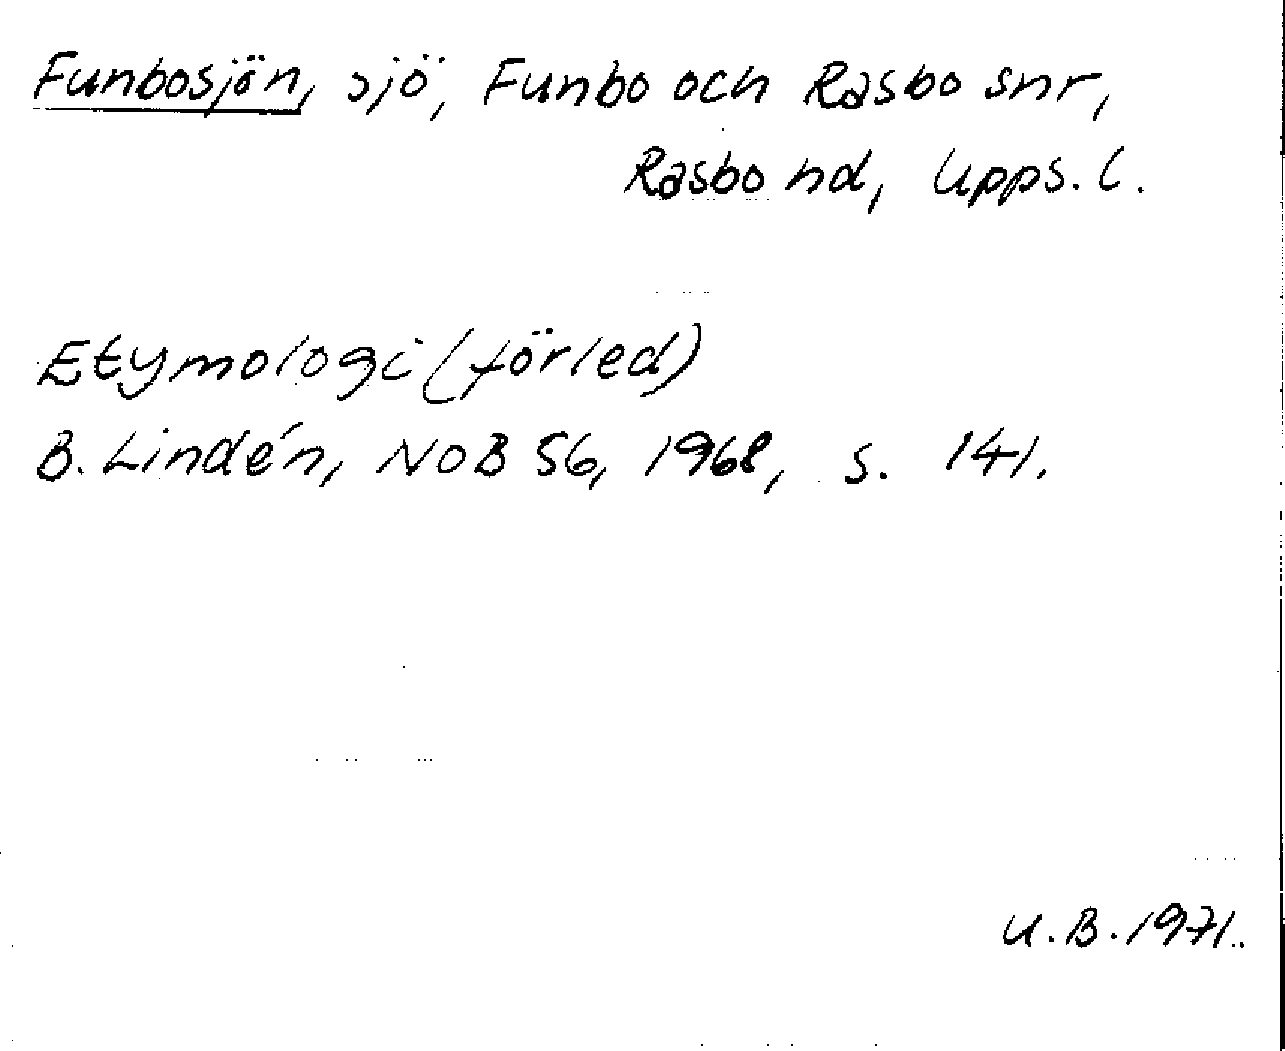 Funbosjön, sjö, Funbo och Rasbo snr,
Rasbo hd, Upps. l.
Etymologi (förled)
B. Lindén, NoB 56, 1968, s. 141.
U.B. 1971.